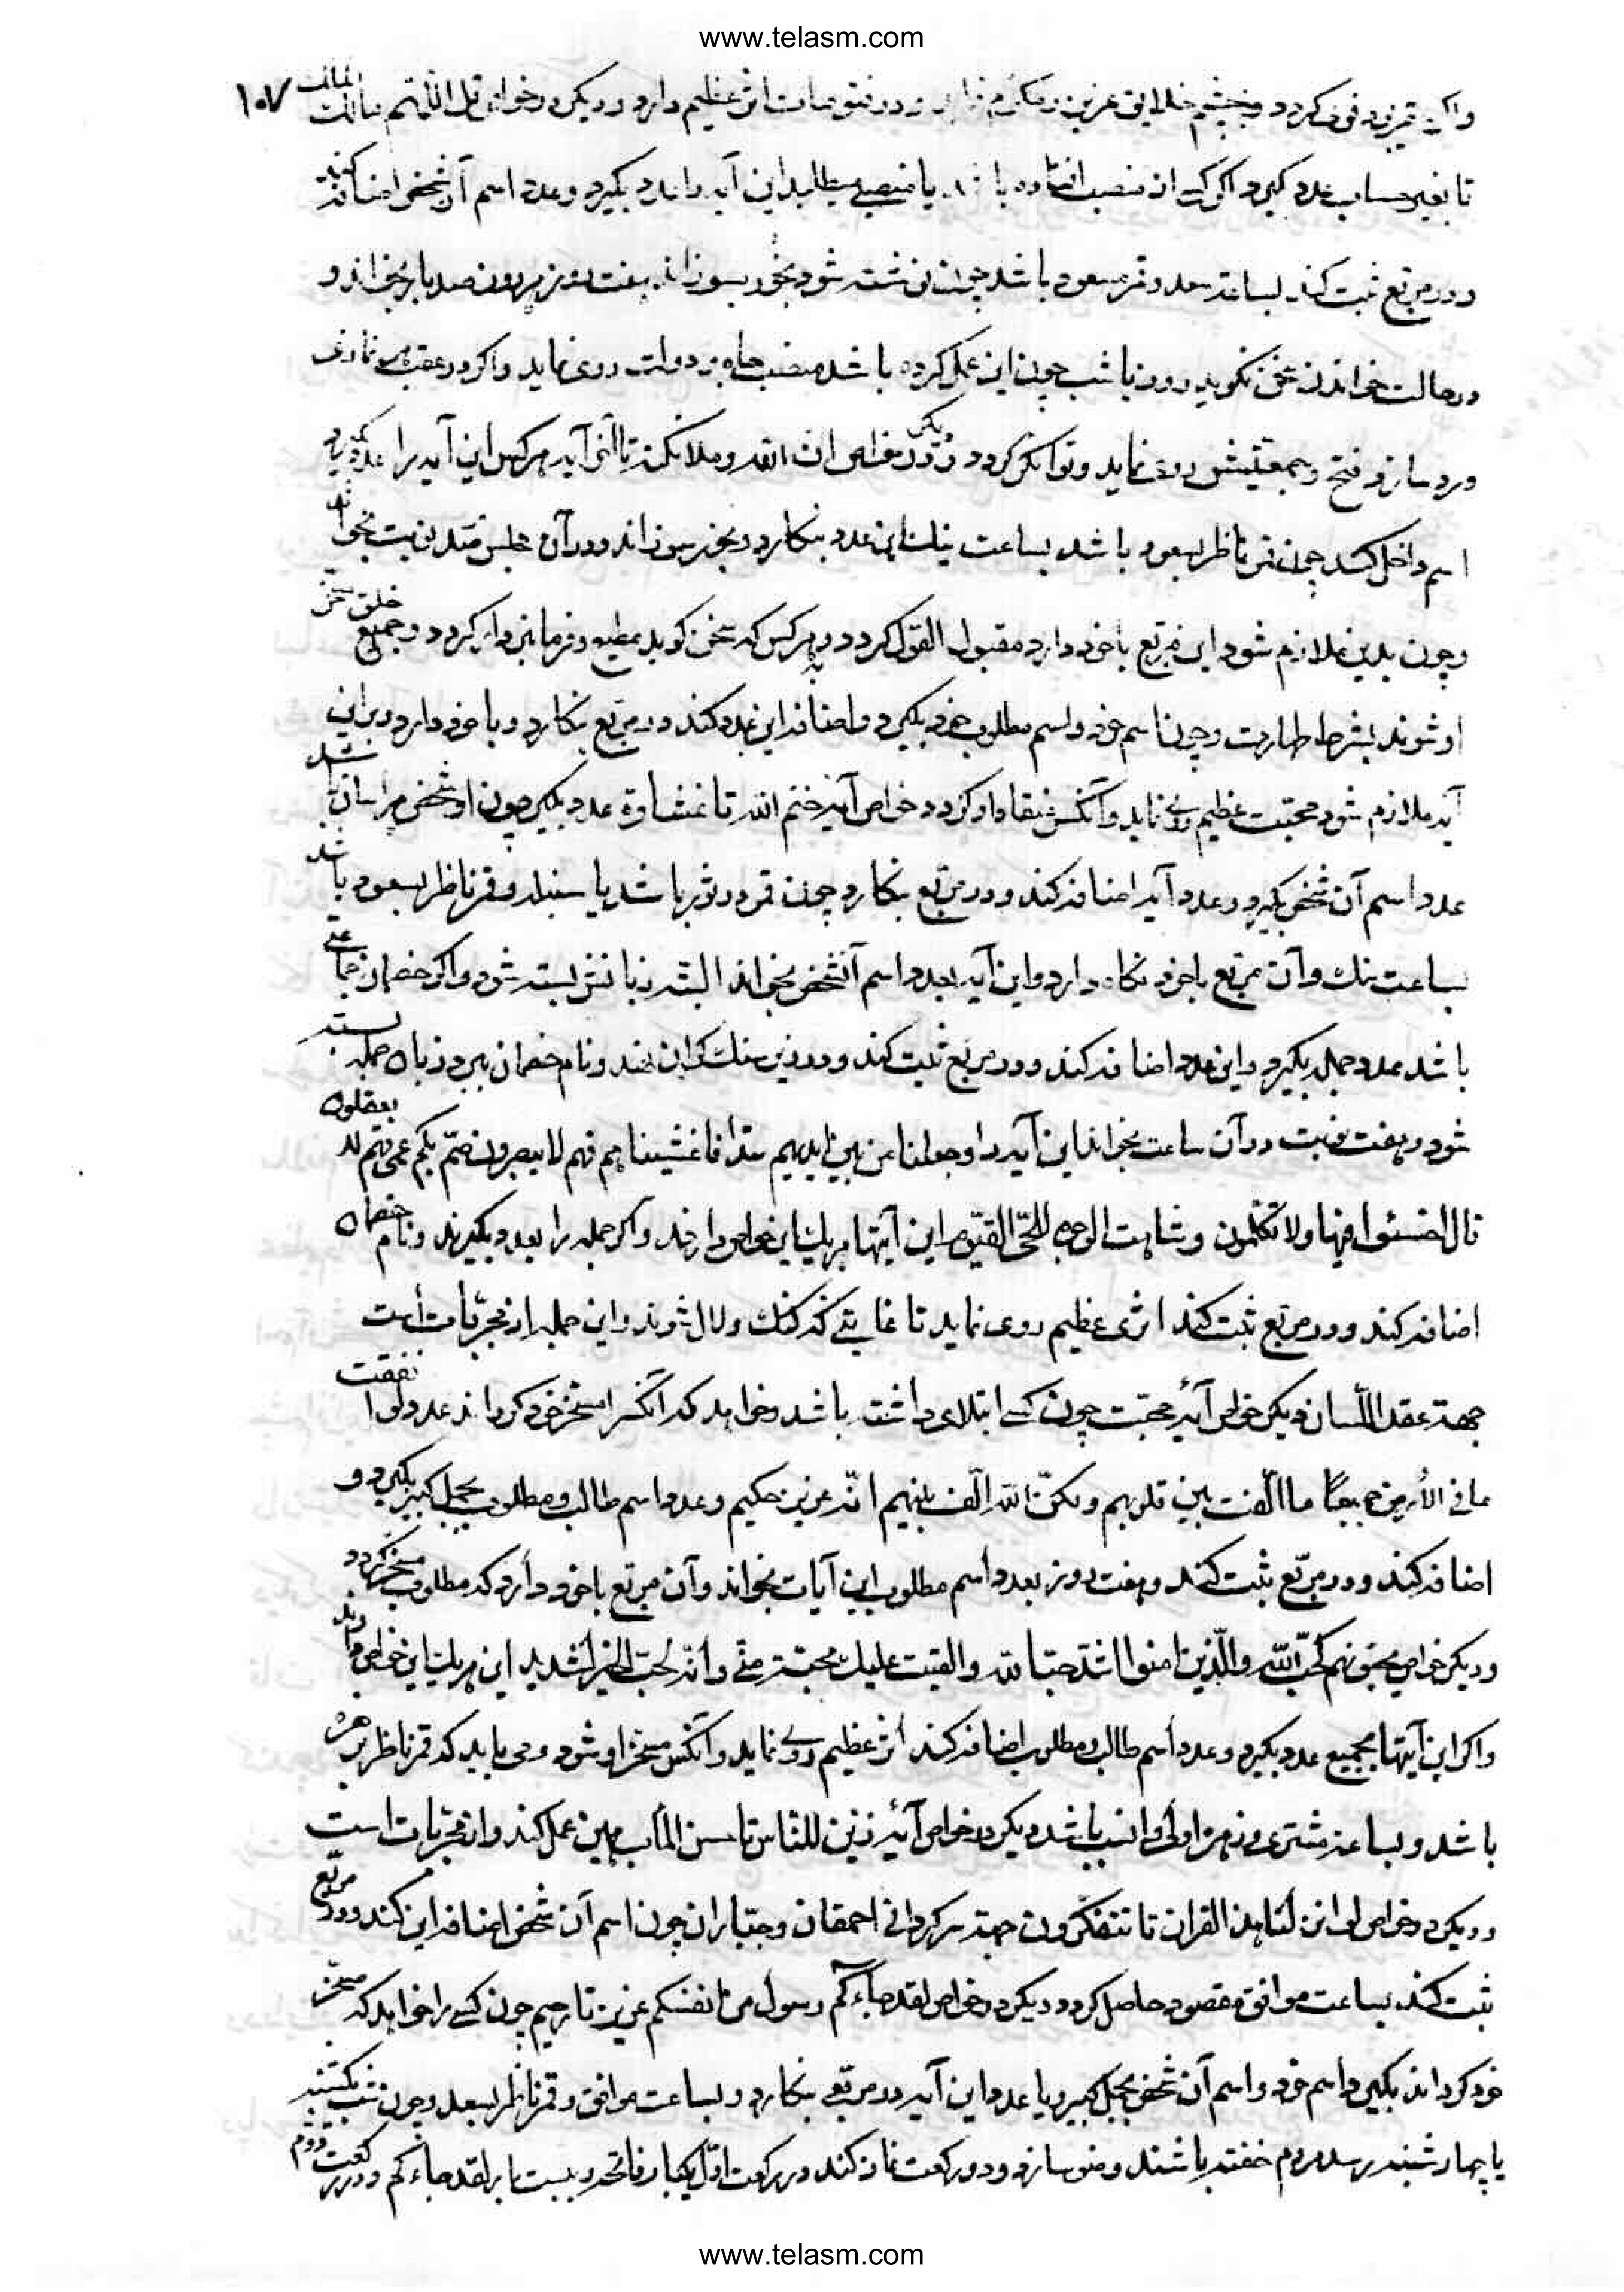 www.telasm.com
۱۰۷
قمر در قوی کردد و بچشم خلایق عزیز و مکرم در فتوحات اثر عظیم دارد و دیگر در خواص قل اللهم مالک الملک
تا بغیر حساب عدد گیرد اگر کسی از منصب افتاده با یا منصبی میطلبد این آیه را عدد بگیرد و عدد اسم آن شخص اضافه کند
و در مربع ثبت کند بساعت سعد و قمر مسعود باشد چون نوشته شود بخور بسوزاند هفت روز هر روز صد بار بخواند و
در حالت خواندن سخن نگوید روز یا شب چون این عمل کرده باشد منصب و جاه و دولت روی نماید و اگر در عقب هر نمازی
ورد سازد فتح و جمعیتش روی نماید و توانگر گردد و دیگر در خواص ان الله و ملائکته تا آخر آیه هر کس این آیه را عدد گیرد با
اسم داخل کند چون قمر ناظر بسعود باشد بساعت نیک این عدد بنگارد و بخور بسوزاند و در آن مجلس صد نوبت بخواند
و چون بدین ملازم شود این مربع با خود دارد مقبول القول گردد و بهر کس که سخن گوید مطیع و فرمانبردار گردد و جمیع خلق مسخر
او شوند بشرط طهارت و چون اسم خود و اسم مطلوب خود بگیرد و اضافه این عدد کند و در مربع بنگارد و با خود دارد و بر این
آیه ملازم شود محبت عظیم روی نماید و آنکس منقاد او گردد خواص آیه ختم الله تا غشاوة عدد بگیرد چون از شخصی هراسان باشد
عدد اسم آن شخص بگیرد و عدد آیه اضافه کند و در مربع بنگارد چون قمر در ثور باشد یا سنبله و قمر ناظر بسعود باشد
بساعت نیک و آن مربع با خود نگاه دارد و این آیه بعدد اسم آنشخص بخواند البته زبانش بسته شود و اگر خصمان جماعتی
باشد عدد جمله بگیرد و این عدد اضافه کند و در مربع ثبت کند و در زیر سنک گران نهد و نام خصمان ببرد زبان جمله بسته
شود و هفت نوبت در آن ساعت بخواند این آیه را و جعلنا من بین ایدیهم سدا فاغشیناهم فهم لا یبصرون صم بکم عمی فهم لا یعقلون
قال اخسئوا فیها و لا تکلمون و شاهت الوجوه للحی القیوم این آیتها هر یک این خواص دارند و اگر جمله را بعدد بگیرند و نام خصمان
اضافه کند و در مربع ثبت کند اثری عظیم روی نماید تا غایتی که کنک و لال شوند و این جمله از مجربات است
جهت عقد اللسان و دیگر خواص آیه محبت چون کسی ابتلای داشته باشد و خواهد که آنکس را مسخر خود گرداند عدد لو انفقت
ما فی الارض جمیعا ما الفت بین قلوبهم و لکن الله الف بینهم انه عزیز حکیم و عدد اسم طالب و مطلوب بجمل کبیر بگیرد و
اضافه کند و در مربع ثبت کند و هفت روز بعدد اسم مطلوب این آیات بخواند و آن مربع با خود دارد که مطلوب مسخر گردد
و دیگر خواص یحبونهم کحب الله و الذین امنوا اشد حبا لله و القیت علیک محبة منی و انه لحب الخیر لشدید این هر یک این خواص دارند
و اگر این آیتها بجمیع عدد بگیرد و عدد اسم طالب و مطلوب اضافه کند اثر عظیم روی نماید و آنکس مسخر او شود و می باید که قمر ناظر بزهره
باشد و بساعت مشتری و زهره اولی و انسب باشد دیگر در خواص آیه زین للناس تا حسن المآب همین عمل کند و از مجربات است
و دیگر در خواص لو انزلنا هذا القران تا یتفکرون جهت سرگردانی احمقان و جباران چون اسم آن شخص اضافه این کند و در مربع
ثبت کند بساعت موافق مقصود حاصل گردد دیگر در خواص لقد جاءکم رسول من انفسکم عزیز تا رحیم چون کسی را خواهد که مسخر
خود گرداند بگیرد اسم خود و اسم آن شخص بجمل کبیر و با عدد این آیه در مربعی بنگارد و بساعت موافق و قمر ناظر بسعد و چون شب یکشنبه
یا چهارشنبه برسد مردم خفته باشند وضو سازد و دو رکعت نماز کند در رکعت اول یکبار فاتحه و بیست بار لقد جاءکم و در رکعت دوم
www.telasm.com